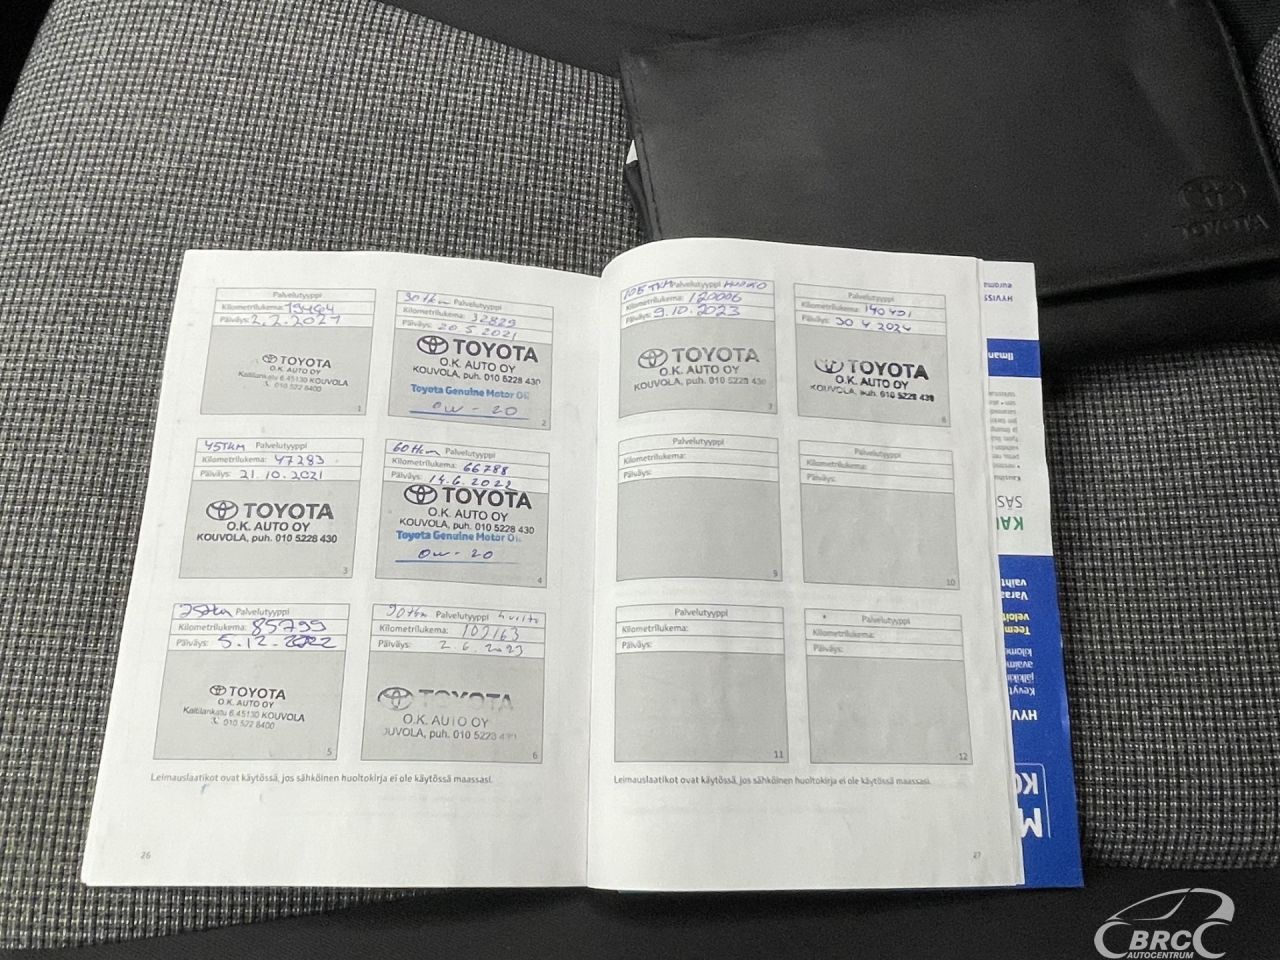 Palvelutyyppi
Kilometrilukema:
Päiväys: 2.2.2021
TOYOTA
O.K. AUTO OY
Kaitilankatu 6.45130 KOUVOLA
010 522 8400
1
30tkm Palvelutyyppi
Kilometrilukema: 32829
Päiväys: 20.5.2021
TOYOTA
O.K. AUTO OY
KOUVOLA, puh. 010 5228 430
Toyota Genuine Motor Oil
0W-20
2
45TKM Palvelutyyppi
Kilometrilukema: 47283
Päiväys: 21.10.2021
TOYOTA
O.K. AUTO OY
KOUVOLA, puh. 010 5228 430
3
60tkm Palvelutyyppi
Kilometrilukema: 66788
Päiväys: 14.6.2022
TOYOTA
O.K. AUTO OY
KOUVOLA, puh. 010 5228 430
Toyota Genuine Motor Oil
0W-20
4
75tkm Palvelutyyppi
Kilometrilukema: 85799
Päiväys: 5.12.2022
TOYOTA
O.K. AUTO OY
Kaitilankatu 6.45130 KOUVOLA
010 522 8400
5
90tkm Palvelutyyppi
Kilometrilukema: 102163
Päiväys: 2.6.2023
TOYOTA
O.K. AUTO OY
OUVOLA, puh. 010 5228 430
6
Leimauslaatikot ovat käytössä, jos sähköinen huoltokirja ei ole käytössä maassasi.
26
105TKM Palvelutyyppi HUOLTO
Kilometrilukema: 120006
Päiväys: 9.10.2023
TOYOTA
O.K. AUTO OY
KOUVOLA, puh. 010 5228 430
7
Palvelutyyppi
Kilometrilukema: 140491
Päiväys: 30 4 2024
TOYOTA
O.K. AUTO OY
KOUVOLA, puh. 010 5228 430
8
Palvelutyyppi
Kilometrilukema:
Päiväys:
9
Palvelutyyppi
Kilometrilukema:
Päiväys:
10
Palvelutyyppi
Kilometrilukema:
Päiväys:
11
Palvelutyyppi
Kilometrilukema:
Päiväys:
12
Leimauslaatikot ovat käytössä, jos sähköinen huoltokirja ei ole käytössä maassasi.
27
TOYOTA
BRC
AUTOCENTRUM